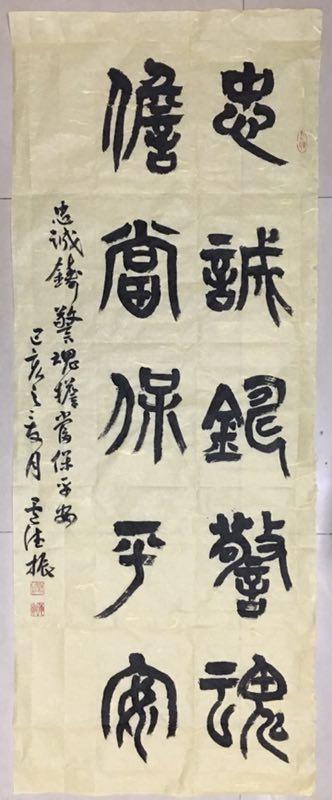 忠誠鑄警魂
儋當保平安
忠诚鑄警魂擔當保平安
己亥之月振